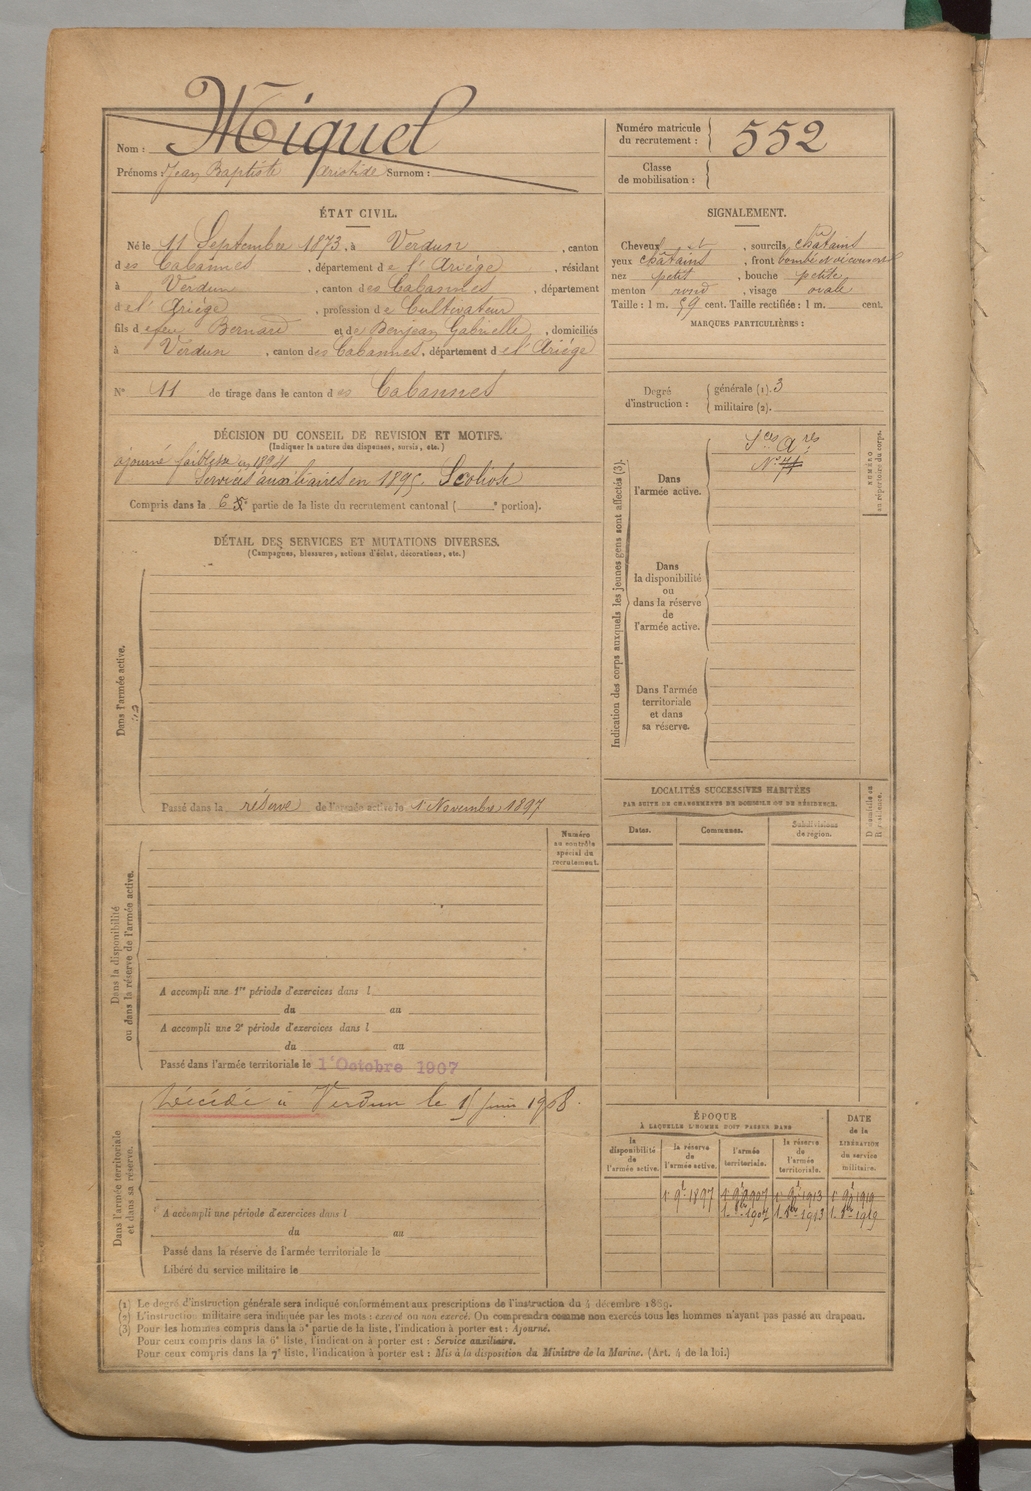 Nom : Miquel
Prénoms : Jean Baptiste Aristide Surnom :
Numéro matricule du recrutement : 552
Classe de mobilisation :
ÉTAT CIVIL.
Né le 11 Septembre 1873, à Verdun, canton
des Cabannes, département de l'Ariége, résidant
à Verdun, canton des Cabannes, département
de l'Ariége, profession de Cultivateur
fils de feu Bernard et de Bonjean Gabrielle, domiciliés
à Verdun, canton des Cabannes, département de l'Ariége
N° 11 de tirage dans le canton des Cabannes
SIGNALEMENT.
Cheveux et, sourcils chatains
yeux chatains, front bombé et découvert
nez petit, bouche petite
menton rond, visage ovale
Taille : 1 m. 59 cent. Taille rectifiée : 1 m. cent.
MARQUES PARTICULIÈRES :
Degré d'instruction : générale (1). 3
militaire (2).
DÉCISION DU CONSEIL DE REVISION ET MOTIFS.
(Indiquer la nature des dispenses, sursis, etc.)
ajourné faiblesse en 1894
Services auxiliaires en 1895. Scoliose
Compris dans la 6e partie de la liste du recrutement cantonal ( e portion).
DÉTAIL DES SERVICES ET MUTATIONS DIVERSES.
(Campagnes, blessures, actions d'éclat, décorations, etc.)
Dans l'armée active.
Passé dans la réserve de l'armée active le 1 Novembre 1897
Indication des corps auxquels les jeunes gens sont affectés (3).
Dans l'armée active.
Sces Ares
NUMÉRO au répertoire du corps.
Dans la disponibilité ou dans la réserve de l'armée active.
Dans l'armée territoriale et dans sa réserve.
LOCALITÉS SUCCESSIVES HABITÉES
PAR SUITE DE CHANGEMENTS DE DOMICILE OU DE RÉSIDENCE.
Dates.
Communes.
Subdivisions de région.
D domicile ou R résidence.
Numéro au contrôle spécial du recrutement.
Dans la disponibilité ou dans la réserve de l'armée active.
A accompli une 1re période d'exercices dans l
du au
A accompli une 2e période d'exercices dans l
du au
Passé dans l'armée territoriale le 1er Octobre 1907
Dans l'armée territoriale et dans sa réserve.
Décédé à Verdun le 15 juin 1908.
A accompli une période d'exercices dans l
du au
Passé dans la réserve de l'armée territoriale le
Libéré du service militaire le
ÉPOQUE
À LAQUELLE L'HOMME DOIT PASSER DANS
la disponibilité de l'armée active.
la réserve de l'armée active.
l'armée territoriale.
la réserve de l'armée territoriale.
DATE de la LIBÉRATION du service militaire.
1 9bre 1897 1 9bre 1907 1 9bre 1913 1 9bre 1919
1 8bre 1907 1 8bre 1913 1 8bre 1919
(1) Le degré d'instruction générale sera indiqué conformément aux prescriptions de l'instruction du 4 décembre 1889.
(2) L'instruction militaire sera indiquée par les mots : exercé ou non exercé. On comprendra comme non exercés tous les hommes n'ayant pas passé au drapeau.
(3) Pour les hommes compris dans la 5e partie de la liste, l'indication à porter est : Ajourné.
Pour ceux compris dans la 6e liste, l'indication à porter est : Service auxiliaire.
Pour ceux compris dans la 7e liste, l'indication à porter est : Mis à la disposition du Ministre de la Marine. (Art. 4 de la loi.)